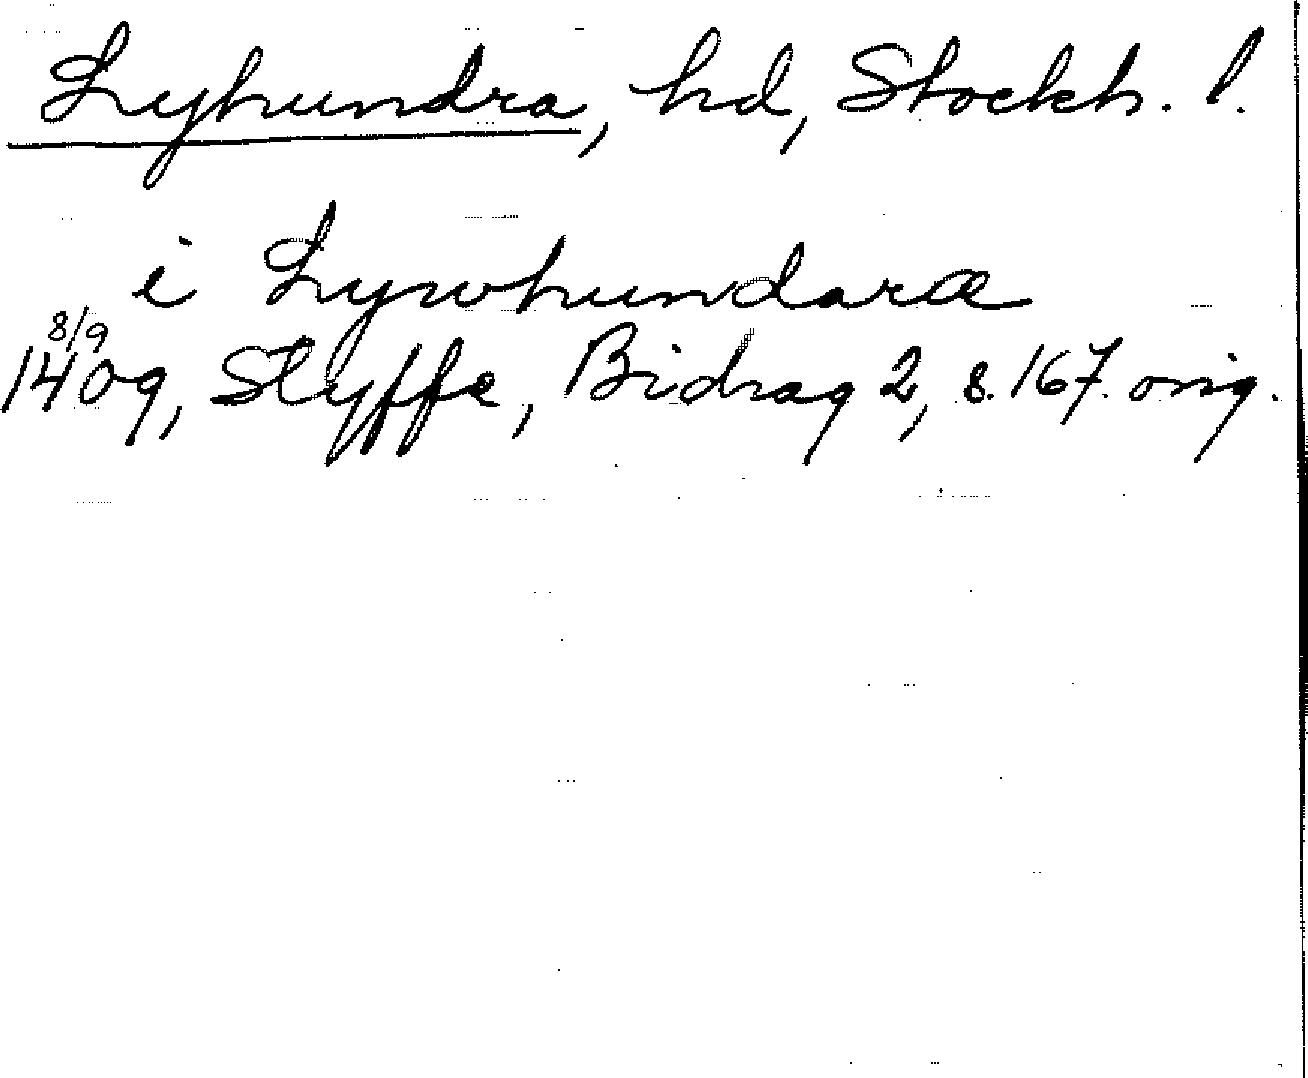 Lyhundra, hd, Stockh. l.
i Lywhundaræ
8/9
1409, Styffe, Bidrag 2, s. 167. orig.